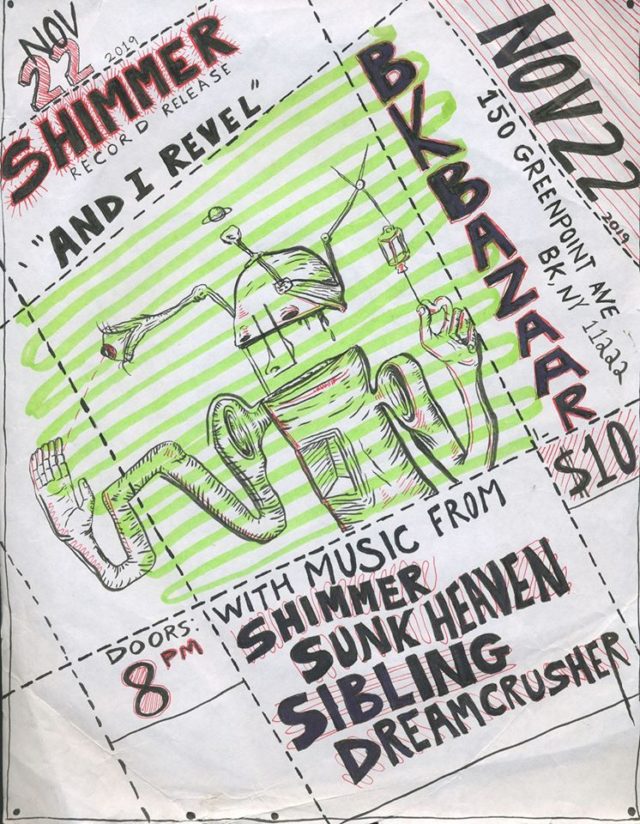 NOV
22
2019
SHIMMER
RECORD RELEASE
"AND I REVEL"
BKBAZAAR
NOV 22
2019
150 GREENPOINT AVE
BK, NY 11222
$10
WITH MUSIC FROM
SHIMMER
SUNK HEAVEN
SIBLING
DREAMCRUSHER
DOORS:
8 PM